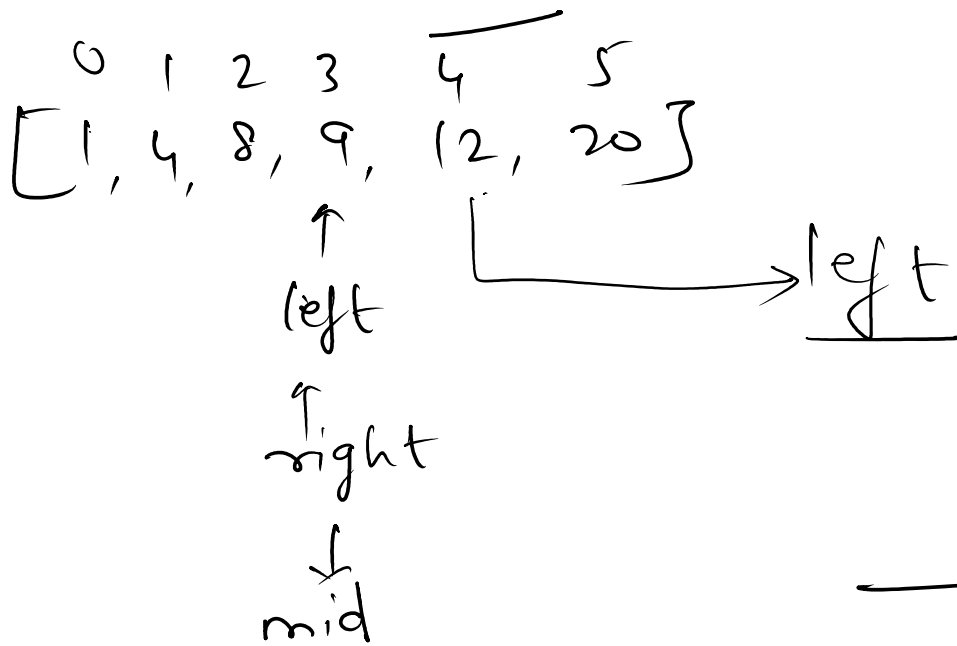 0 1 2 3 4 5
[1, 4, 8, 9, 12, 20]
left
left
right
mid